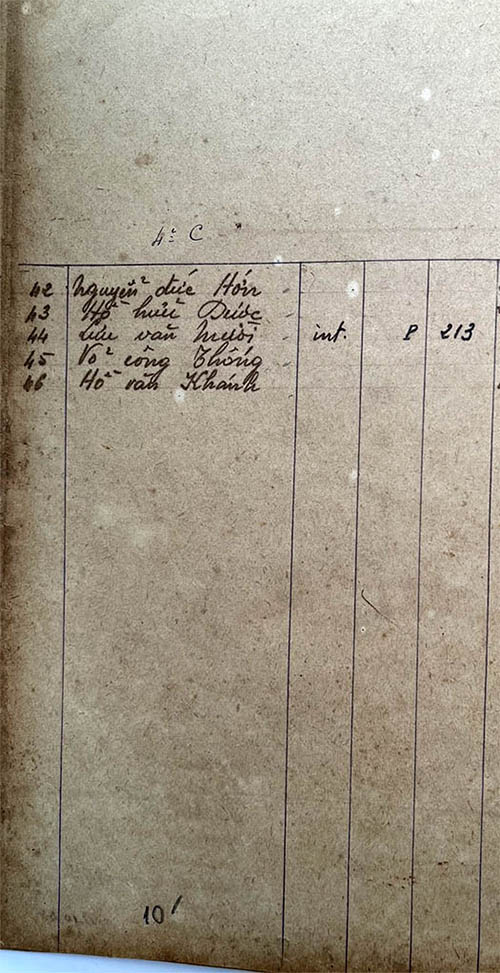 4e C
42 Nguyễn đức Hớn -
43 Hồ hữu Dược -
44 văn Mười - int. P 213
45 Võ công Thống -
46 Hồ văn Khánh
10